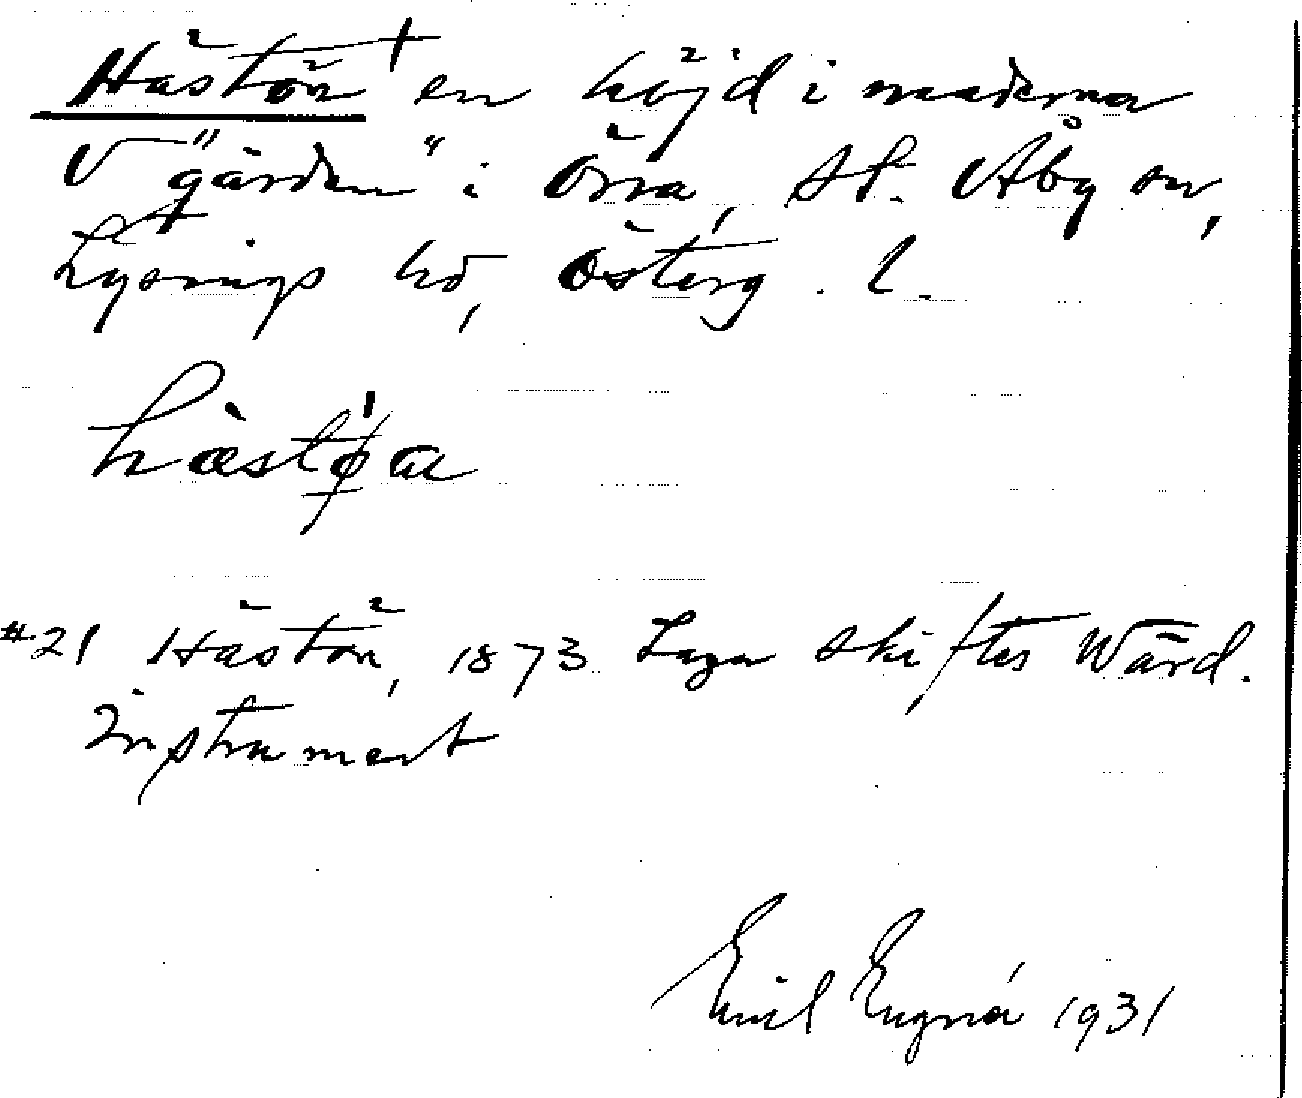 Hästön + en höjd i maderna
V "gärden" i Örra, St. Åby sn,
Lysings hd, Österg. l.
hæstøa
#21 Hästön, 1873 Laga skiftes Wärd.
Instrument
Emil Eugné 1931